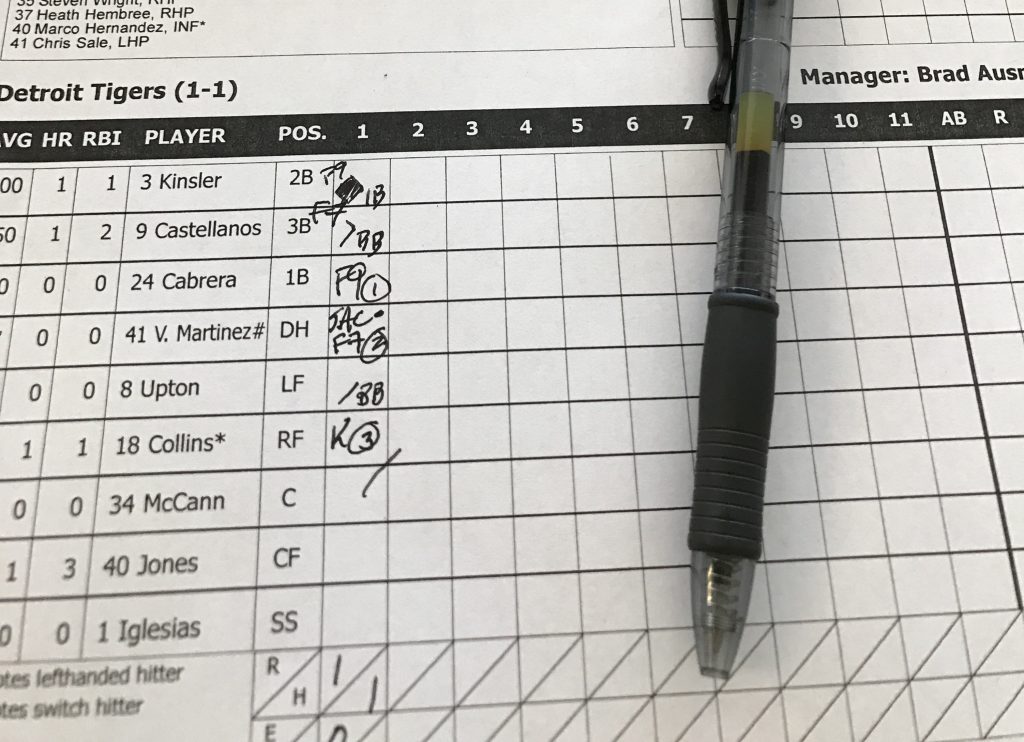 35 Steven Wright, RHP
37 Heath Hembree, RHP
40 Marco Hernandez, INF*
41 Chris Sale, LHP
Detroit Tigers (1-1) Manager: Brad Ausm
AVG HR RBI PLAYER POS. 1 2 3 4 5 6 7 9 10 11 AB R
00 1 1 3 Kinsler 2B 1B
50 1 2 9 Castellanos 3B BB
0 0 0 24 Cabrera 1B F9 1
0 0 41 V. Martinez# DH SAC- F7 2
0 0 8 Upton LF BB
1 1 18 Collins* RF K 3
0 0 34 McCann C
1 3 40 Jones CF
0 0 1 Iglesias SS
otes lefthanded hitter R 1
otes switch hitter H 1
E 0